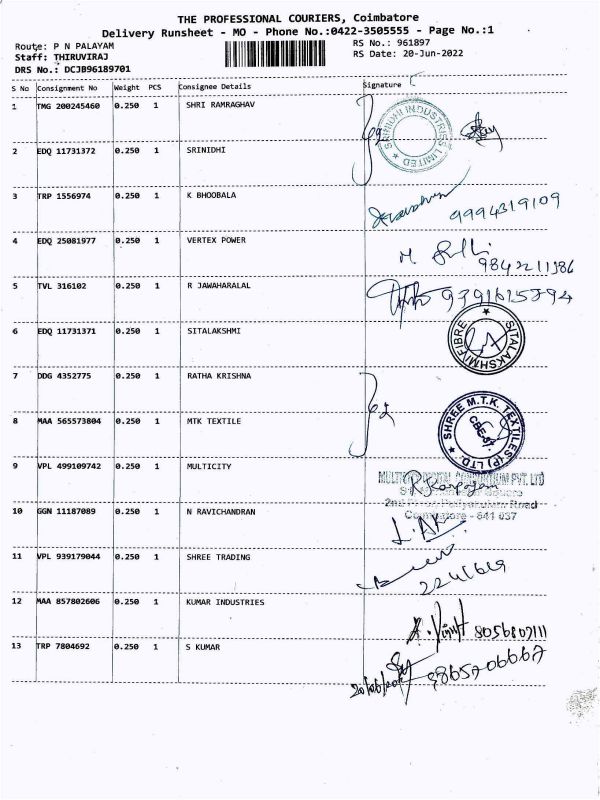 THE PROFESSIONAL COURIERS, Coimbatore
Delivery Runsheet - MO - Phone No.:0422-3505555 - Page No.:1
Route: P N PALAYAM
RS No.: 961897
Staff: THIRUVIRAJ
RS Date: 20-Jun-2022
DRS No.: DCJB96189701
S No Consignment No Weight PCS Consignee Details Signature
1 TMG 200245460 0.250 1 SHRI RAMRAGHAV
SRINIDHI INDUSTRIES LIMITED
2 EDQ 11731372 0.250 1 SRINIDHI
3 TRP 1556974 0.250 1 K BHOOBALA
9994319109
4 EDQ 25081977 0.250 1 VERTEX POWER
9842211386
5 TVL 316102 0.250 1 R JAWAHARALAL
9391615894
6 EDQ 11731371 0.250 1 SITALAKSHMI
SITALAKSHMI FIBRE
7 DDG 4352775 0.250 1 RATHA KRISHNA
8 MAA 565573804 0.250 1 MTK TEXTILE
SHREE M.T.K. TEXTILES (P) LTD.
9 VPL 499109742 0.250 1 MULTICITY
PVT. LTD
Road
Coimbatore - 641 037
10 GGN 11187089 0.250 1 N RAVICHANDRAN
11 VPL 939179044 0.250 1 SHREE TRADING
2241669
12 MAA 857802606 0.250 1 KUMAR INDUSTRIES
8056807111
13 TRP 7804692 0.250 1 S KUMAR
9865706667